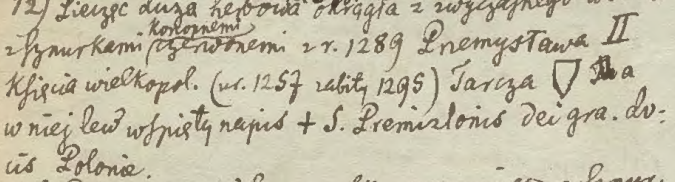 12) Pieczęć duża herbowa okrągła z zwyczajnego w
konopnemi
z sznurkami czerwonemi z r. 1289 Przemysława II
Księcia wielkopol. (ur. 1257 zabity 1295) Tarcza a
w niej lew wspięty napis + S. Premizlonis dei gra. du-
cis Polonie.